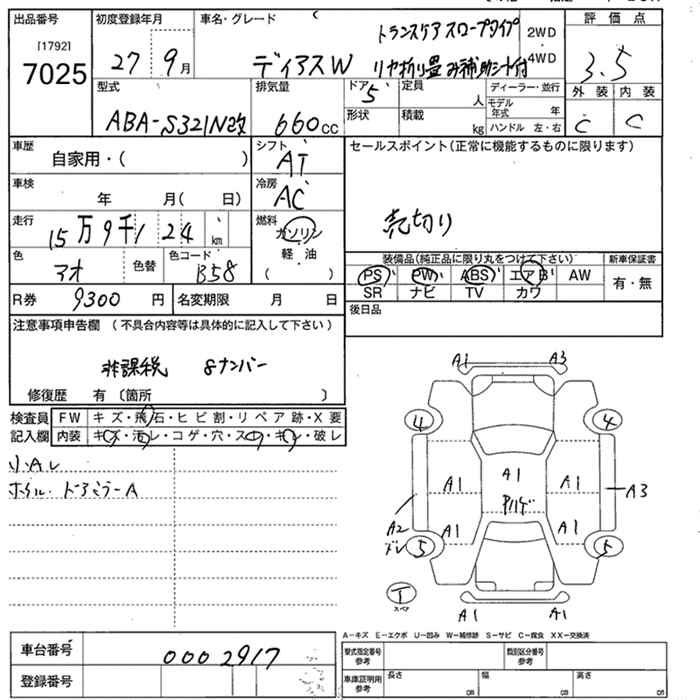 出品番号 初度登録年月 車名・グレード 評価点
[1792]
7025
27 9月
ディアスW
トランスケアスロープタイプ
リヤ折り畳み補助シート付
2WD
4WD
3.5
型式
ABA-S321N改
排気量
660cc
ドア 5
形状
定員 人
積載 kg
ディーラー・並行
モデル年式 年
ハンドル 左・右
外装 内装
C C
車歴 自家用・( )
シフト AT
セールスポイント(正常に機能するものに限ります)
売切り
車検 年 月( 日)
冷房 AC
走行 15万9千124km
燃料
ガソリン
軽油
( )
色 アオ 色替
色コード B58
装備品(純正品に限り丸をつけて下さい) 新車保証書
PS PW ABS エアB AW
SR ナビ TV カワ
有・無
R券 9300円
名変期限 月 日
後日品
注意事項申告欄(不具合内容等は具体的に記入して下さい)
非課税 8ナンバー
修復歴 有〔箇所 〕
検査員記入欄
FW キズ・飛石・ヒビ割・リペア跡・X要
内装 キズ・汚レ・コゲ・穴・スレ・キレ・破レ
小Aレ
ホイル・ドアミラーA
A1 A3
4 4
A1 A1 A1
A3
A2
A1 A1
5 5
スペア
A1 A1
A-キズ E-エクボ U-凹み W-補修跡 S-サビ C-腐食 XX-交換済
車台番号 0002917
登録番号
型式指定番号参考
類別区分番号参考
車庫証明用参考
長さ cm 幅 cm 高さ cm